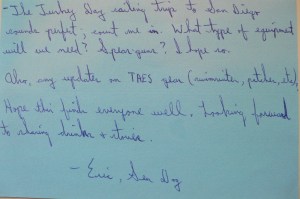 - The Turkey Day sailing trip to San Diego
sounds perfect, count me in. What type of equipment
will we need? Spear guns? I hope so.
Also, any updates on TRES gear (swimsuits, pitches, etc)
Hope this finds everyone well. Looking forward
to sharing drinks & stories.
- Eric, Sea Dog